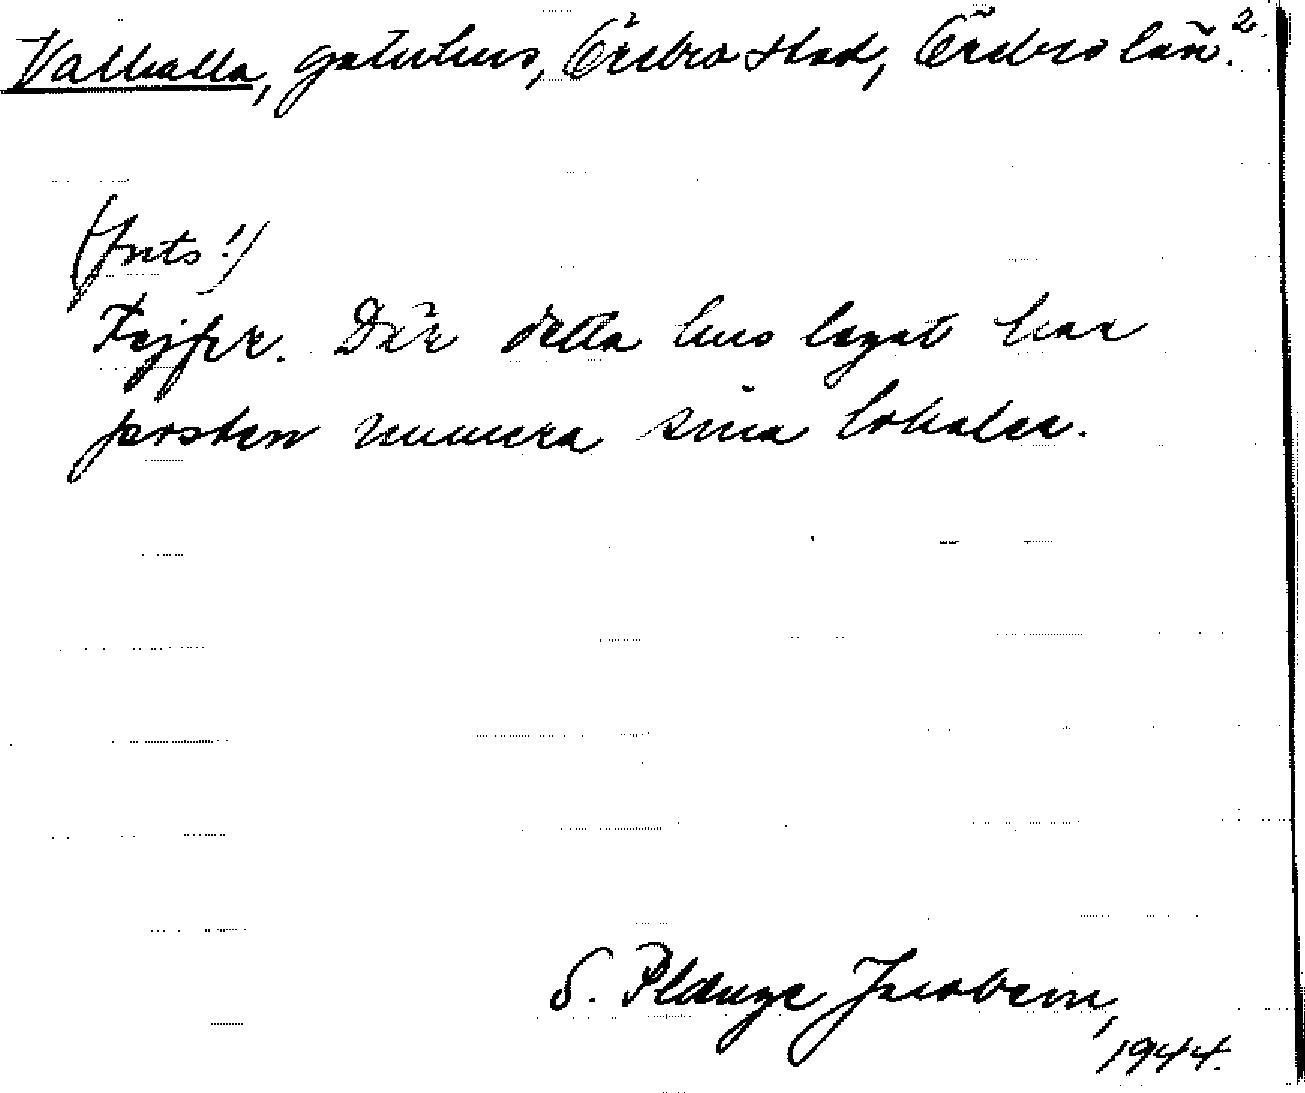 Valhalla, gatuhus, Örebro stad, Örebro län. 2.
(forts!)
Där detta hus legat har
posten numera sina lokaler.
S. Plænge Jacobson,
1944.